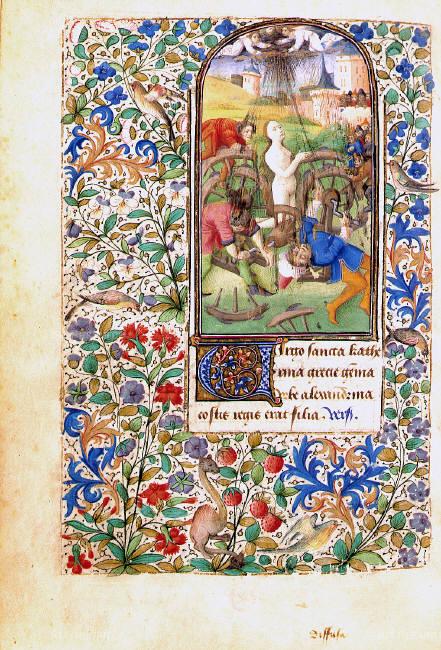 Virgo sancta kathe
rina grecie gēma
vrbe alexandrina
costis regis erat filia. Vers.
Diffusa